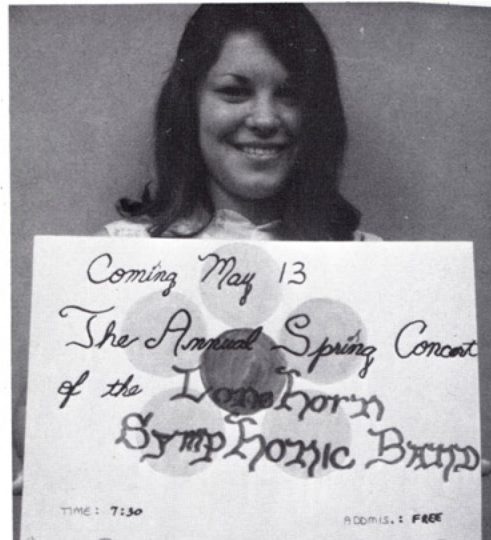 Coming May 13
The Annual Spring Concert
of the Longhorn
Symphonic Band
TIME: 7:30
ADDMIS.: FREE